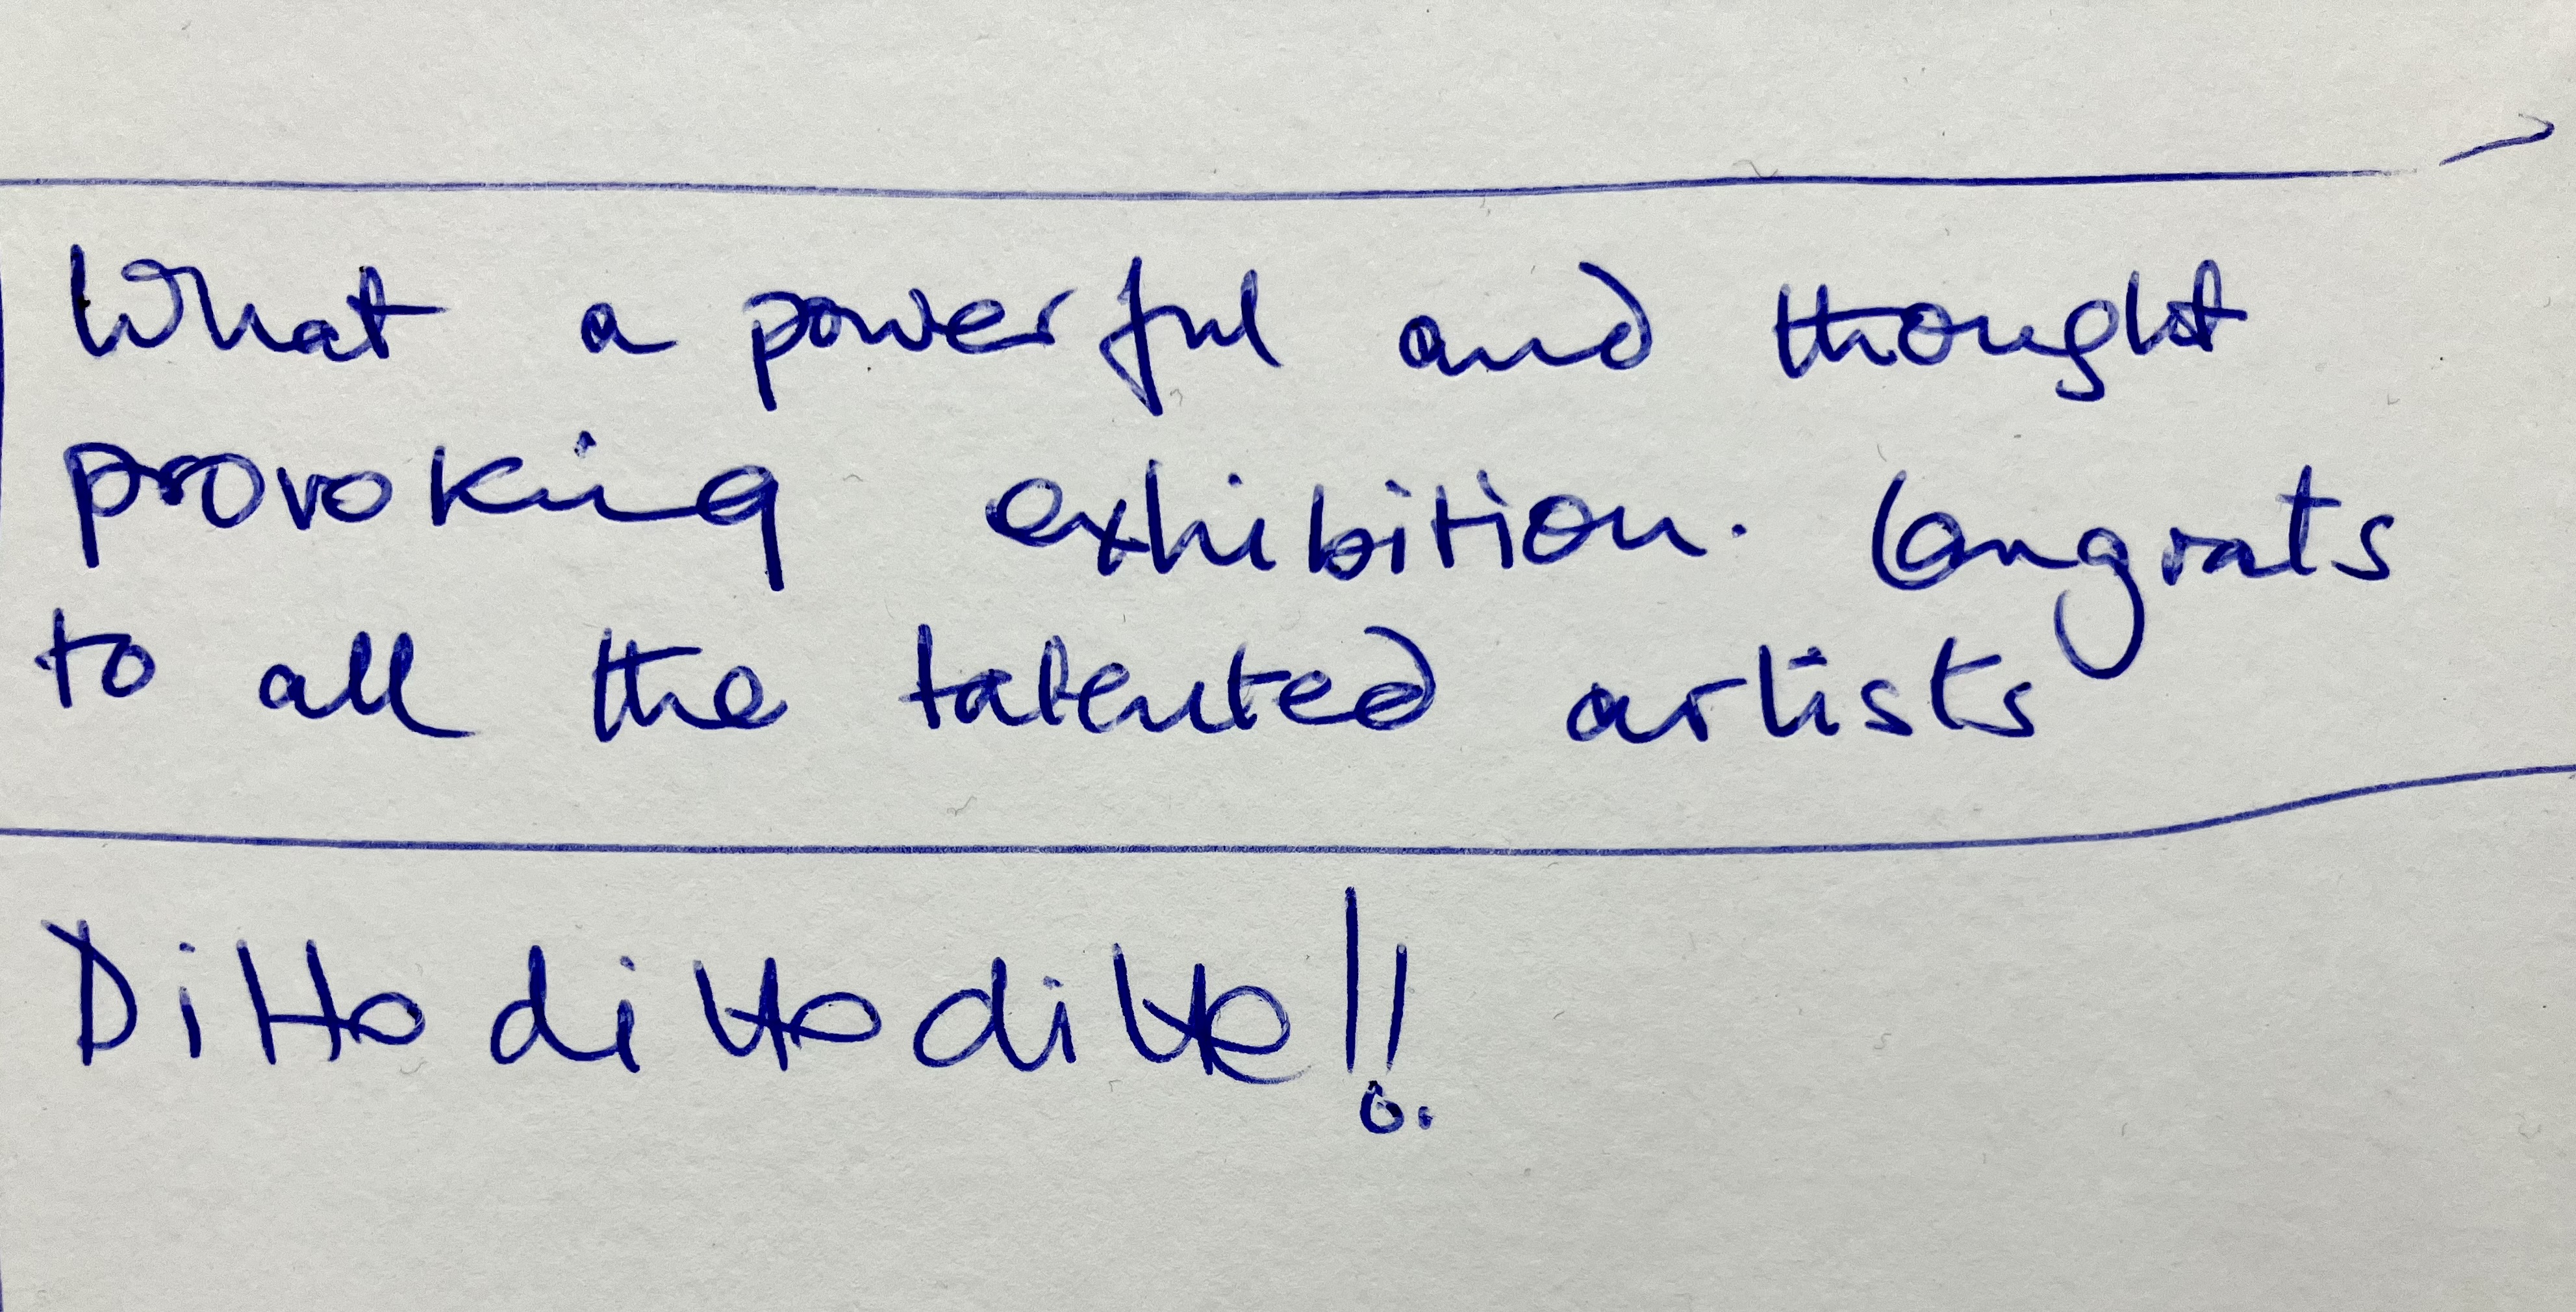 What a powerful and thought
provoking exhibition. Congrats
to all the talented artists
Ditto ditto ditto!!